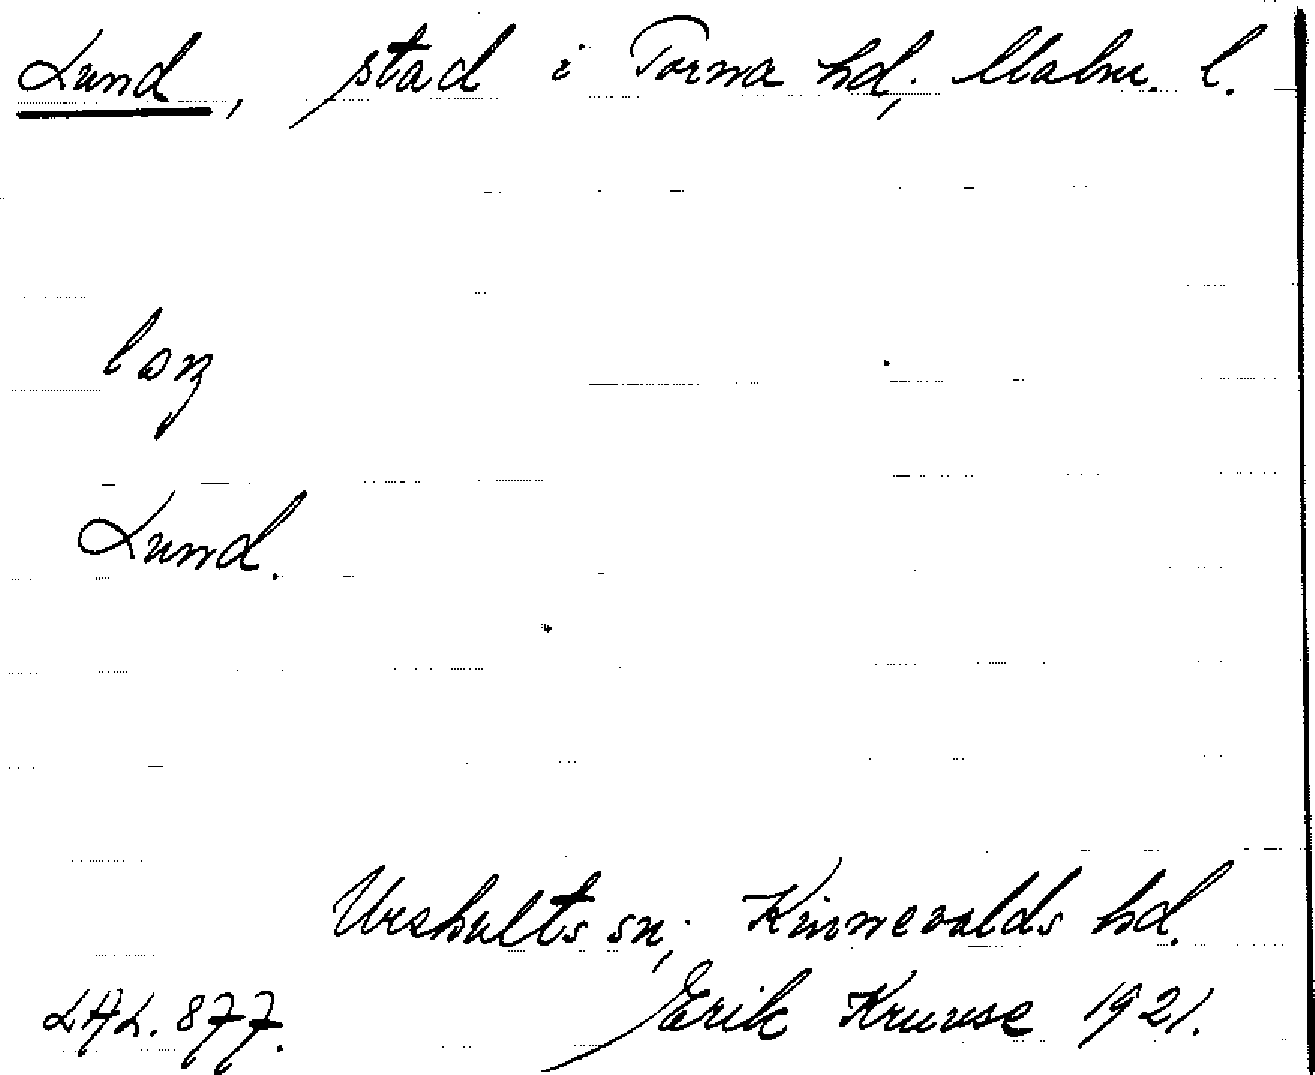 Lund, stad i Torna hd., Malm. l.
Lund.
Urshults sn., Kinnevalds hd.
LAL. 877. Erik Kruuse 1921.